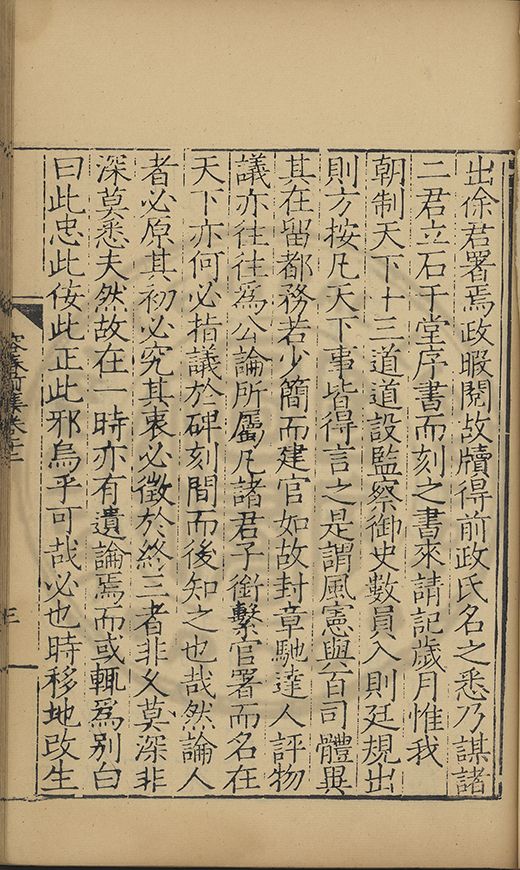 出徐君署焉政暇閱故牘得前政氏名之悉乃謀諸
二君立石于堂序書而刻之書來請記歲月惟我
朝制天下十三道道設監察御史數員入則廷規出
則方按凡天下事皆得言之是謂風憲與百司體異
其在留都務若少簡而建官如故封章馳達人評物
議亦往往爲公論所屬凡諸君子銜繫官署而名在
天下亦何必指議於碑刻間而後知之也哉然論人
者必原其初必究其衷必徵於終三者非久莫深非
深莫悉夫然故在一時亦有遺論焉而或輒爲別白
曰此忠此侫此正此邪烏乎可哉必也時移地改生
集卷十二
三